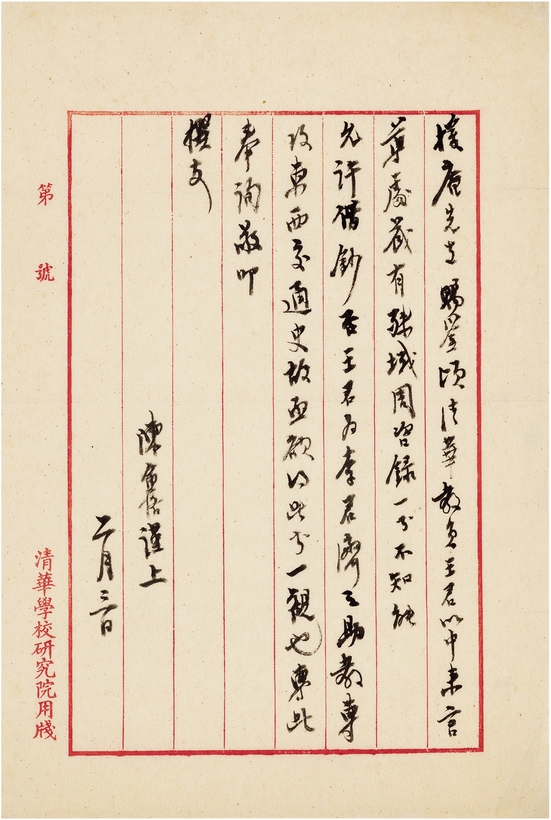 援庵先生賜鑒頃清華教員王君以中来言
尊處藏有殊域周咨録一书不知能
允許借鈔否王君为李君濟之助教專
攻東西交通史故亟欲得此书一觀也專此
奉詢敬叩
撰安
陳寅恪謹上
二月三日
第 號
清華學校研究院用牋